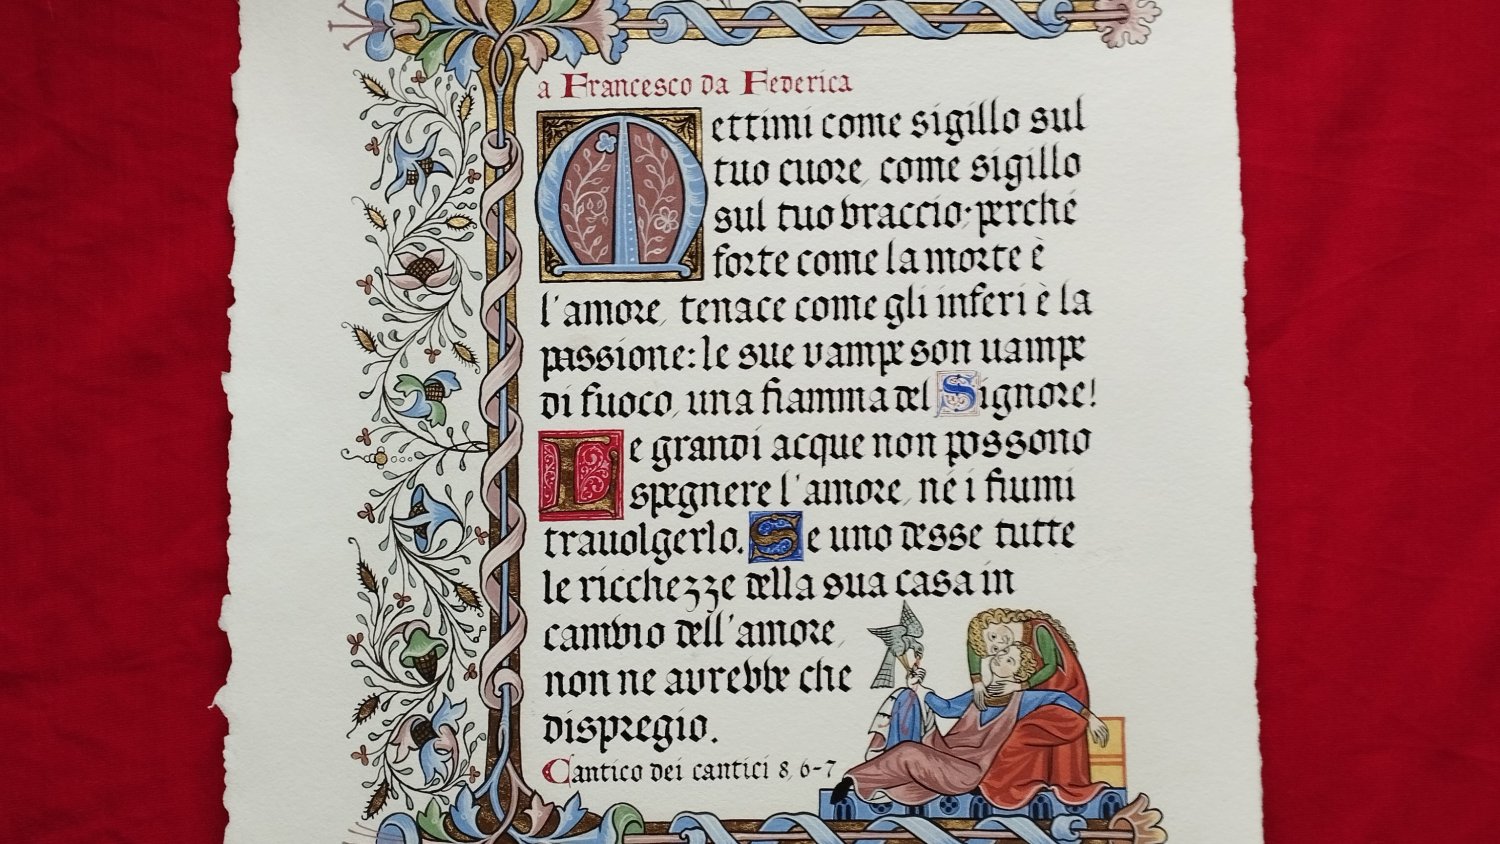 a Francesco da Federica
Mettimi come sigillo sul
tuo cuore, come sigillo
sul tuo braccio; perché
forte come la morte è
l'amore, tenace come gli inferi è la
passione: le sue vampe son vampe
di fuoco, una fiamma del Signore!
Le grandi acque non possono
spegnere l'amore, né i fiumi
travolgerlo. Se uno desse tutte
le ricchezze della sua casa in
cambio dell'amore,
non ne avrebbe che
dispregio.
Cantico dei cantici 8, 6-7